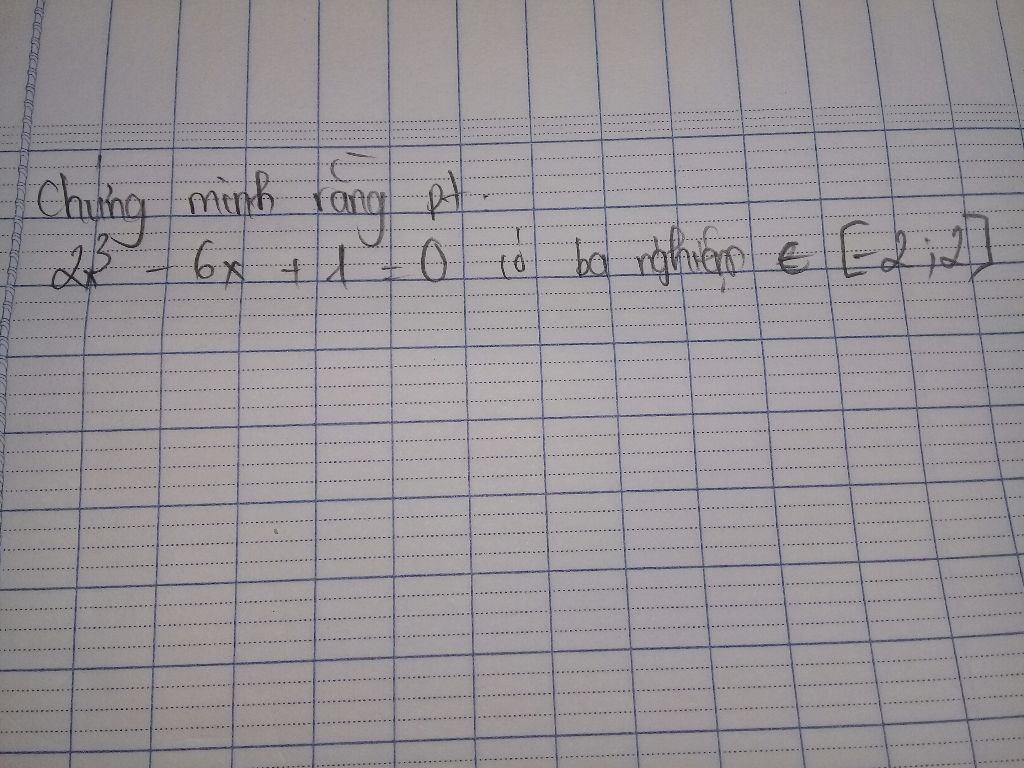 Chứng minh rằng pt.
2x³ - 6x + 1 = 0 có ba nghiệm ∈ [-2;2]